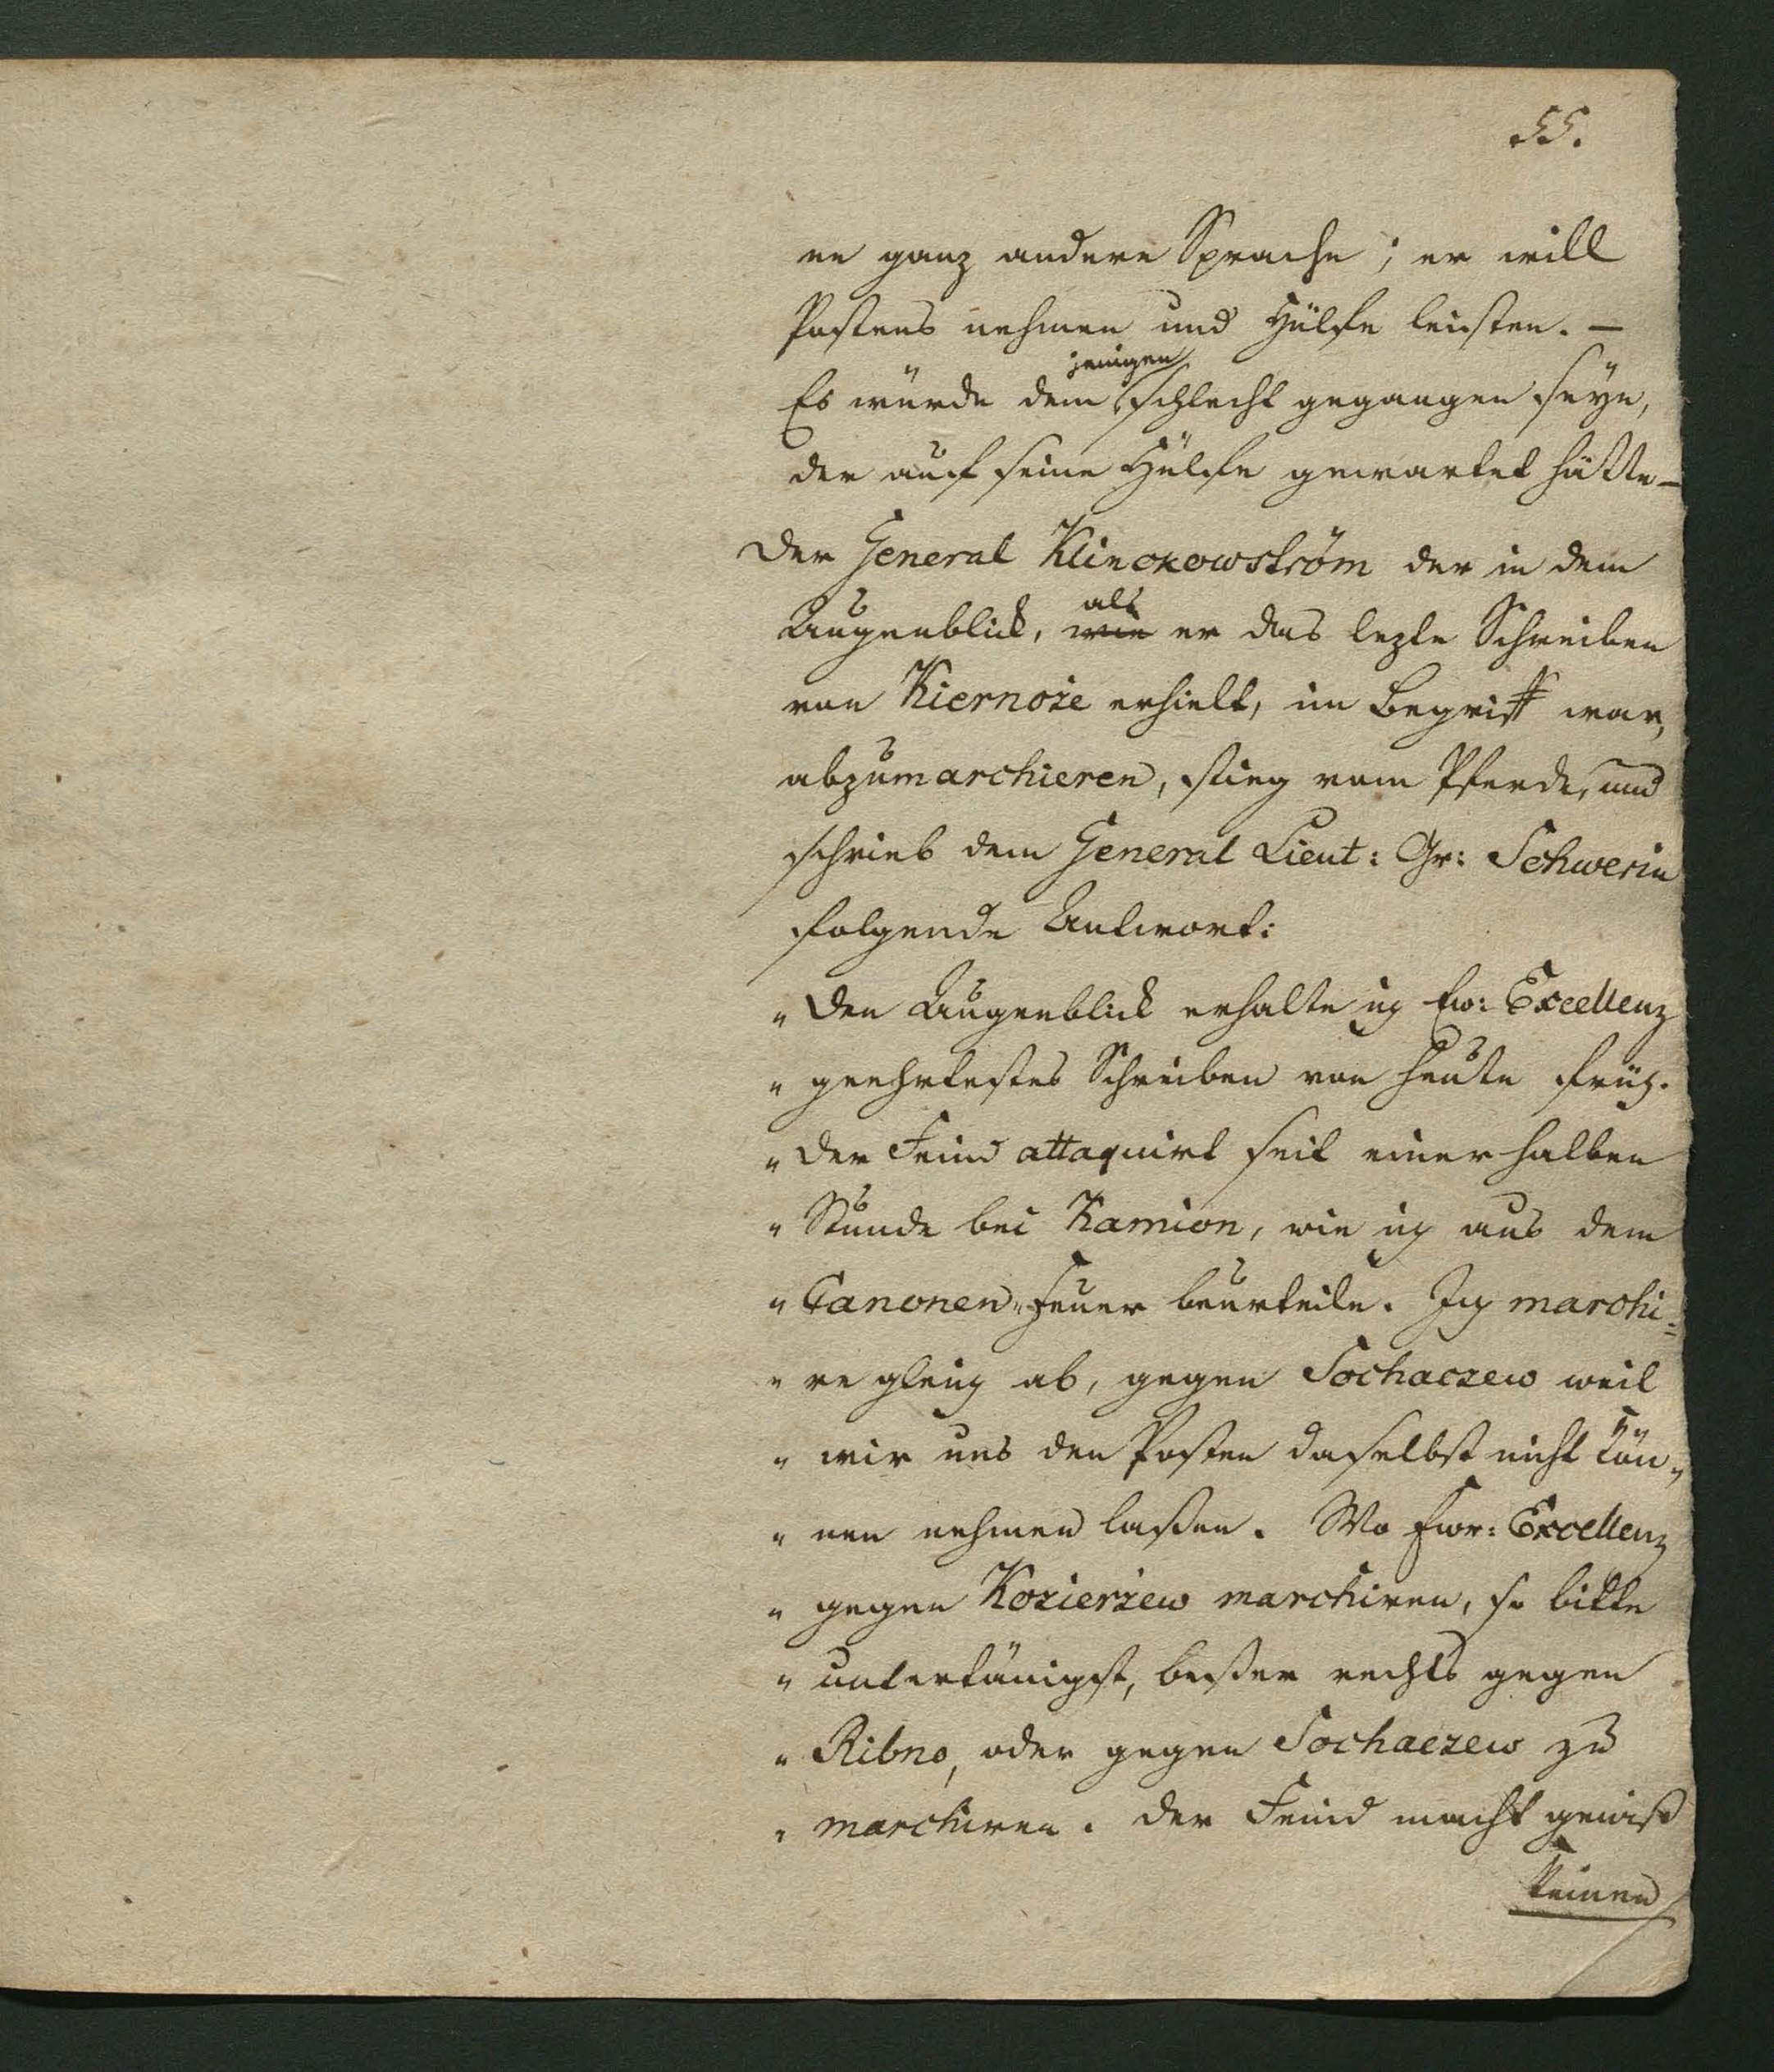 55.
ne ganz andere Sprache; er will
Postens nehmen und Hülfe leisten. –
Es würde dem jenigen schlecht gegangen seÿn,
der auf seine Hülfe gewartet hätte –
Der General Klinckowström der in dem
Augenblick, wie als er das lezte Schreiben
von Kiernoze erhielt, im Begriff war,
abzumarchieren, stieg vom Pferde, und
schrieb dem General Lieut: Gr: Schwerin
folgende Antwort:
„ Den Augenblick erhalte ich Ew: Excellenz
„ geehrtestes Schreiben von heute früh.
„ Der Feind attaquirt seit einer halben
„ Stunde bei Kamion, wie ich aus dem
„ Canonen-Feuer beurteile. Ich marchi=
„ re gleich ab, gegen Sochaczew weil
„ wir uns den Posten daselbst nicht kön„
„ nen nehmen laßen. Wo Ewr: Excellenz
„ gegen Kozierzew marchiren, so bitte
„ untertänigst, beßer rechts gegen
„ Ribno, oder gegen Sochaczew zu
„ marchiren. Der Feind macht gewiß
keinen